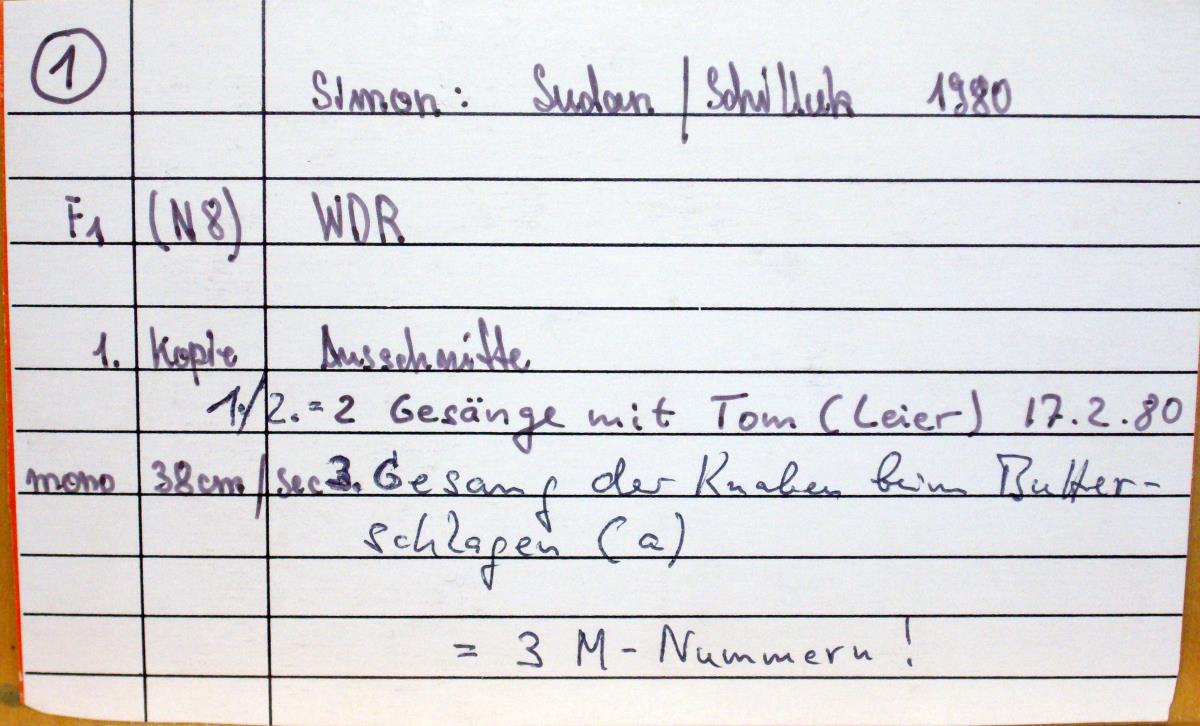 1 Simon: Sudan / Schilluk 1980
F1 (N8) WDR
1. Kopie Ausschnitte
1./2. = 2 Gesänge mit Tom (Leier) 17.2.80
mono 38cm/sec 3. Gesang der Knaben beim Butter-
schlagen (a)
= 3 M-Nummern!